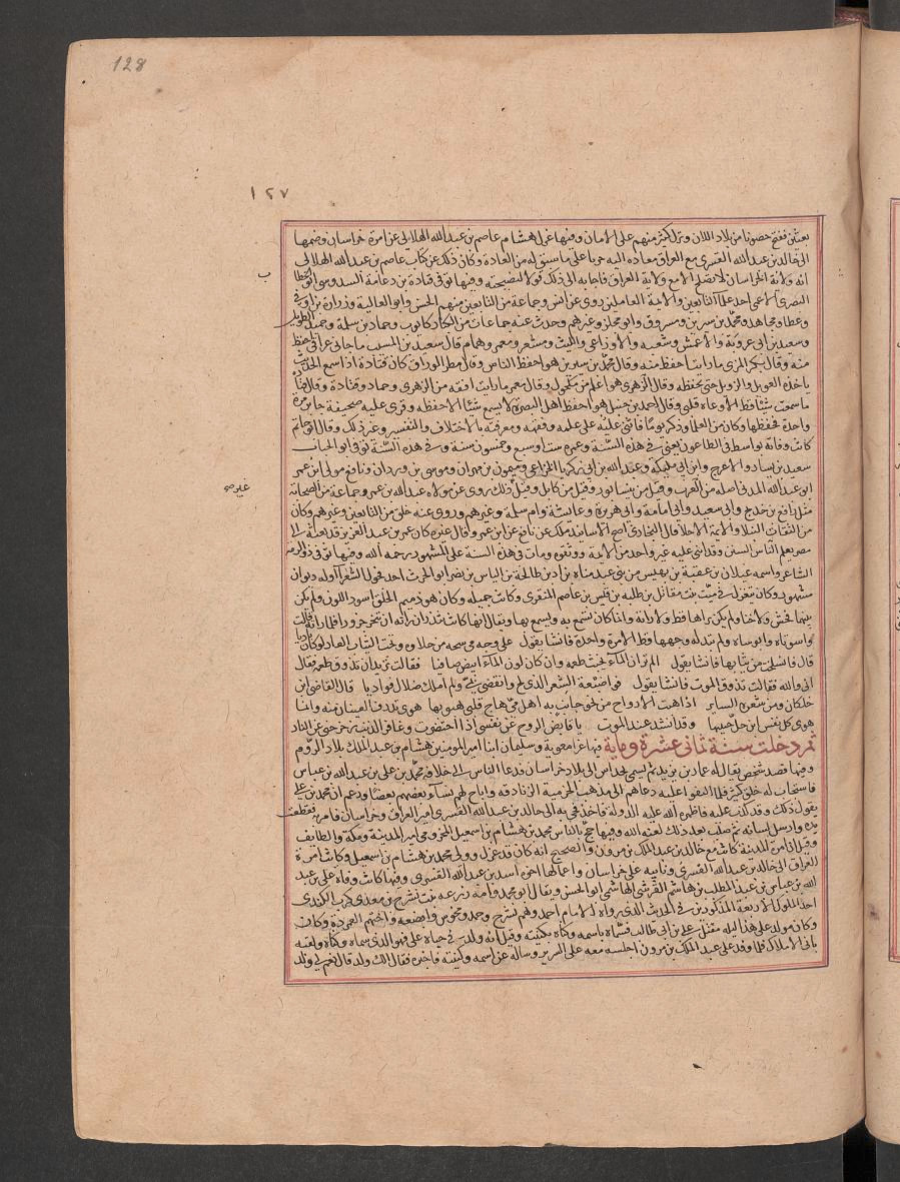 128
١٢٧
ففتح حصونا من بلاد اللان ونزل كثير منهم على الامان وفيها عزل هشام عاصم بن عبد الله الهلالى عن امرة خراسان وضمها
الى خالد بن عبد الله القسرى مع العراق معاده اليه جريا على ما سبق له من العادة وكان ذلك عن كتاب عاصم بن عبد الله الهلالى
ب
انه ولاية الخراسان لا تصلح الا مع ولاية العراق فاجابه الى ذلك قبولا لنصيحته وفيها توفى قتادة بن دعامة السدوسى ابو الخطاب
البصرى الاعمى احد علماء التابعين والايمة العاملين روى عن انس وجماعة من التابعين منهم الحسن وابو العالية وزرارة بن اوفى
وعطا ومجاهد ومحمد بن سيرين ومسروق وابو مجلز وغيرهم وحدث عنه جماعات من الكبار كايوب وحماد بن سلمة وحميد الطويل
وسعيد بن ابى عروبة والاعمش وشعبه والاوزاعى والليث ومسعر ومعمر وهمام قال سعيد بن المسيب ما جانى عراقى احفظ
منه وقال بكر المزنى ما رايت احفظ منه وقال محمد بن سيرين هو احفظ الناس وقال مطر الوراق كان قتادة اذا سمع الحديث
ياخذه العويل والزويل حتى يحفظه وقال الزهرى هو اعلم من مكحول وقال معمر ما رايت افقه من الزهرى وحماد وقتادة وقال قتادة
ما سمعت شيئا قط الا وعاه قلبى وقال احمد بن حنبل هو احفظ اهل البصرة لا يسمع شيئا الا حفظه وقرى عليه صحيفة جابر مرة
واحدة فحفظها وكان من العلما وذكر يوما فاثنى عليه على علمه وفقهه ومعرفته بالاختلاف والتفسير وغير ذلك وقال ابو حاتم
كانت وفاته بواسط فى الطاعون يعنى فى هذه السنة وعمره ست او سبع وخمسون سنة وفى هذه السنة توفى ابو الحباب
سعيد بن يسار والاعرج وابن ابى مليكة وعبد الله بن ابى زكريا الخزاعى وميمون بن مهران وموسى بن وردان ونافع مولى ابن عمر
ابو عبد الله المدنى اصله من الغرب وقيل من نيسابور وقيل من كابل وقيل ذلك روى عن مولاه عبد الله بن عمر وجماعة من الصحابة
مثل رافع بن خديج وابى سعيد وابى امامة وابى هريرة وعايشة وام سلمة وغيرهم وروى عنه خلق من التابعين وغيرهم وكان
من الثقات النبلا والايمة الاجلا قال البخارى اصح الاسانيد ملك عن نافع عن ابن عمر وقال غيره كان عمر بن عبد العزيز قد بعثه الى
مصر يعلم الناس السنن وقد اثنى عليه غير واحد من الايمة ووثقوه ومات فى هذه السنة على المشهور رحمه الله وفيها توفى ذو الرمه
الشاعر واسمه غيلان بن عقبة بن بهيس من بنى عبد مناه بن اد بن طابخة بن الياس بن مضر ابو الحرث احد فحول الشعراء وله ديوان
مشهور وكان يتغزل فى ميت بنت مقاتل بن طلبه بن قيس بن عاصم المنقرى وكانت جميله وكان هو دميم الخلق اسود اللون ولم يكن
بينهما فحش ولا خنا ولم يكن راها قط ولا راته وانما كان تسمع به ويسمع بها ويقال انها كانت تنذر ان راته ان تنحر جزورا فلما راته قالت
واسوتاه واسوتاه ولم تبد له وجهها قط الا مرة واحدة فانشا يقول على وجه مى مسحه من حلاوه وتحت الثياب العار لو كان باديا
قال فانسلخت من ثيابها فانشا يقول الم تر ان الماء يخبث طعمه وان كان لون الماء ابيض صافيا فقالت تريد ان تذوق طعمه فقال
اى والله فقالت تذوق الموت فانشا يقول فواضيعة الشعر الذى لج وانقضى بمى ولم املك ضلال فواديا قال القاضى ابن
خلكان ومن شعره الساير اذا هبت الارواح من نحو جانب به اهل مى هاج قلبى هبوبها هوى تذرف العينان منه وانما
هوى كل نفس اين حل حبيبها وقد انشد عند الموت يا قابض الروح عن نفسى اذا احتضرت وغافر الذنب زحزحنى عن النار
ثم دخلت سنة ثمانى عشرة وماية فيها غزا معوية وسليمان ابنا امير المومنين هشام بن عبد الملك بلاد الروم
وفيها قصد شخص يقال له عمار بن يزيد ثم تسمى بخداس الى بلاد خراسان فدعا الناس الى خلافة محمد بن على بن عبد الله بن عباس
فاستجاب له خلق كثير فلما التفوا عليه دعاهم الى مذهب الخرمية الزنادقه واباح لهم نساء بعضهم بعضا وزعم ان محمد بن على
يقول ذلك وقد كذب عليه فاظهر الله عليه الدولة فاخذ فجى به الى خالد بن عبد الله القسرى امير العراق وخراسان فامر به فقطعت
يده وارسل لسانه ثم صلب بعد ذلك لعنه الله وفيها حج بالناس محمد بن هشام بن اسمعيل المخزومى امير المدينة ومكة والطايف
وقيل ان امرة المدينة كانت مع خالد بن عبد الملك بن مرون والصحيح انه كان قد عزل وولى محمد بن هشام بن اسمعيل وكانت امرة
العراق الى خالد بن عبد الله القسرى ونايبه على خراسان واعمالها اخوه اسد بن عبد الله القسرى وفيها كانت وفاة على بن عبد
الله بن عباس بن عبد المطلب بن هاشم القرشى الهاشمى ابو الحسن ويقال ابو محمد وامه زرعه بنت مشرح بن معدى كرب الكندى
احد الملوك الاربعة المذكورين فى الحديث الذى رواه الامام احمد وهم مشرح وحمد ومخوس وابضعه واختهم العمردة وكان
وكان مولد على هذا ليله مقتل على بن ابى طالب فسماه باسمه وكناه بكنيته وقيل انه ولد فى حياة على فهو الذى سماه وكناه ولقبه
بابى الاملاك فلما وفد على عبد الملك بن مرون اجلسه معه على السرير وساله عن اسمه وكنيته فاخبره فقال الك ولد قال نعم لى ولد
غيره